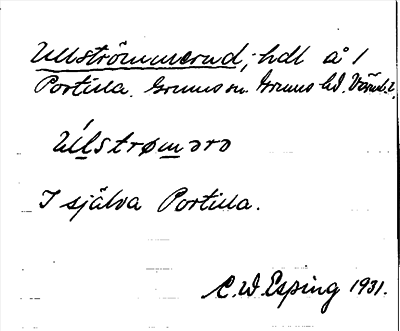 Ullströmmerud; hdl å 1
Portilla. Grums sn. Grums hd. Värml.
Ullstrømərə
I själva Portilla.
C. W. Esping 1931.